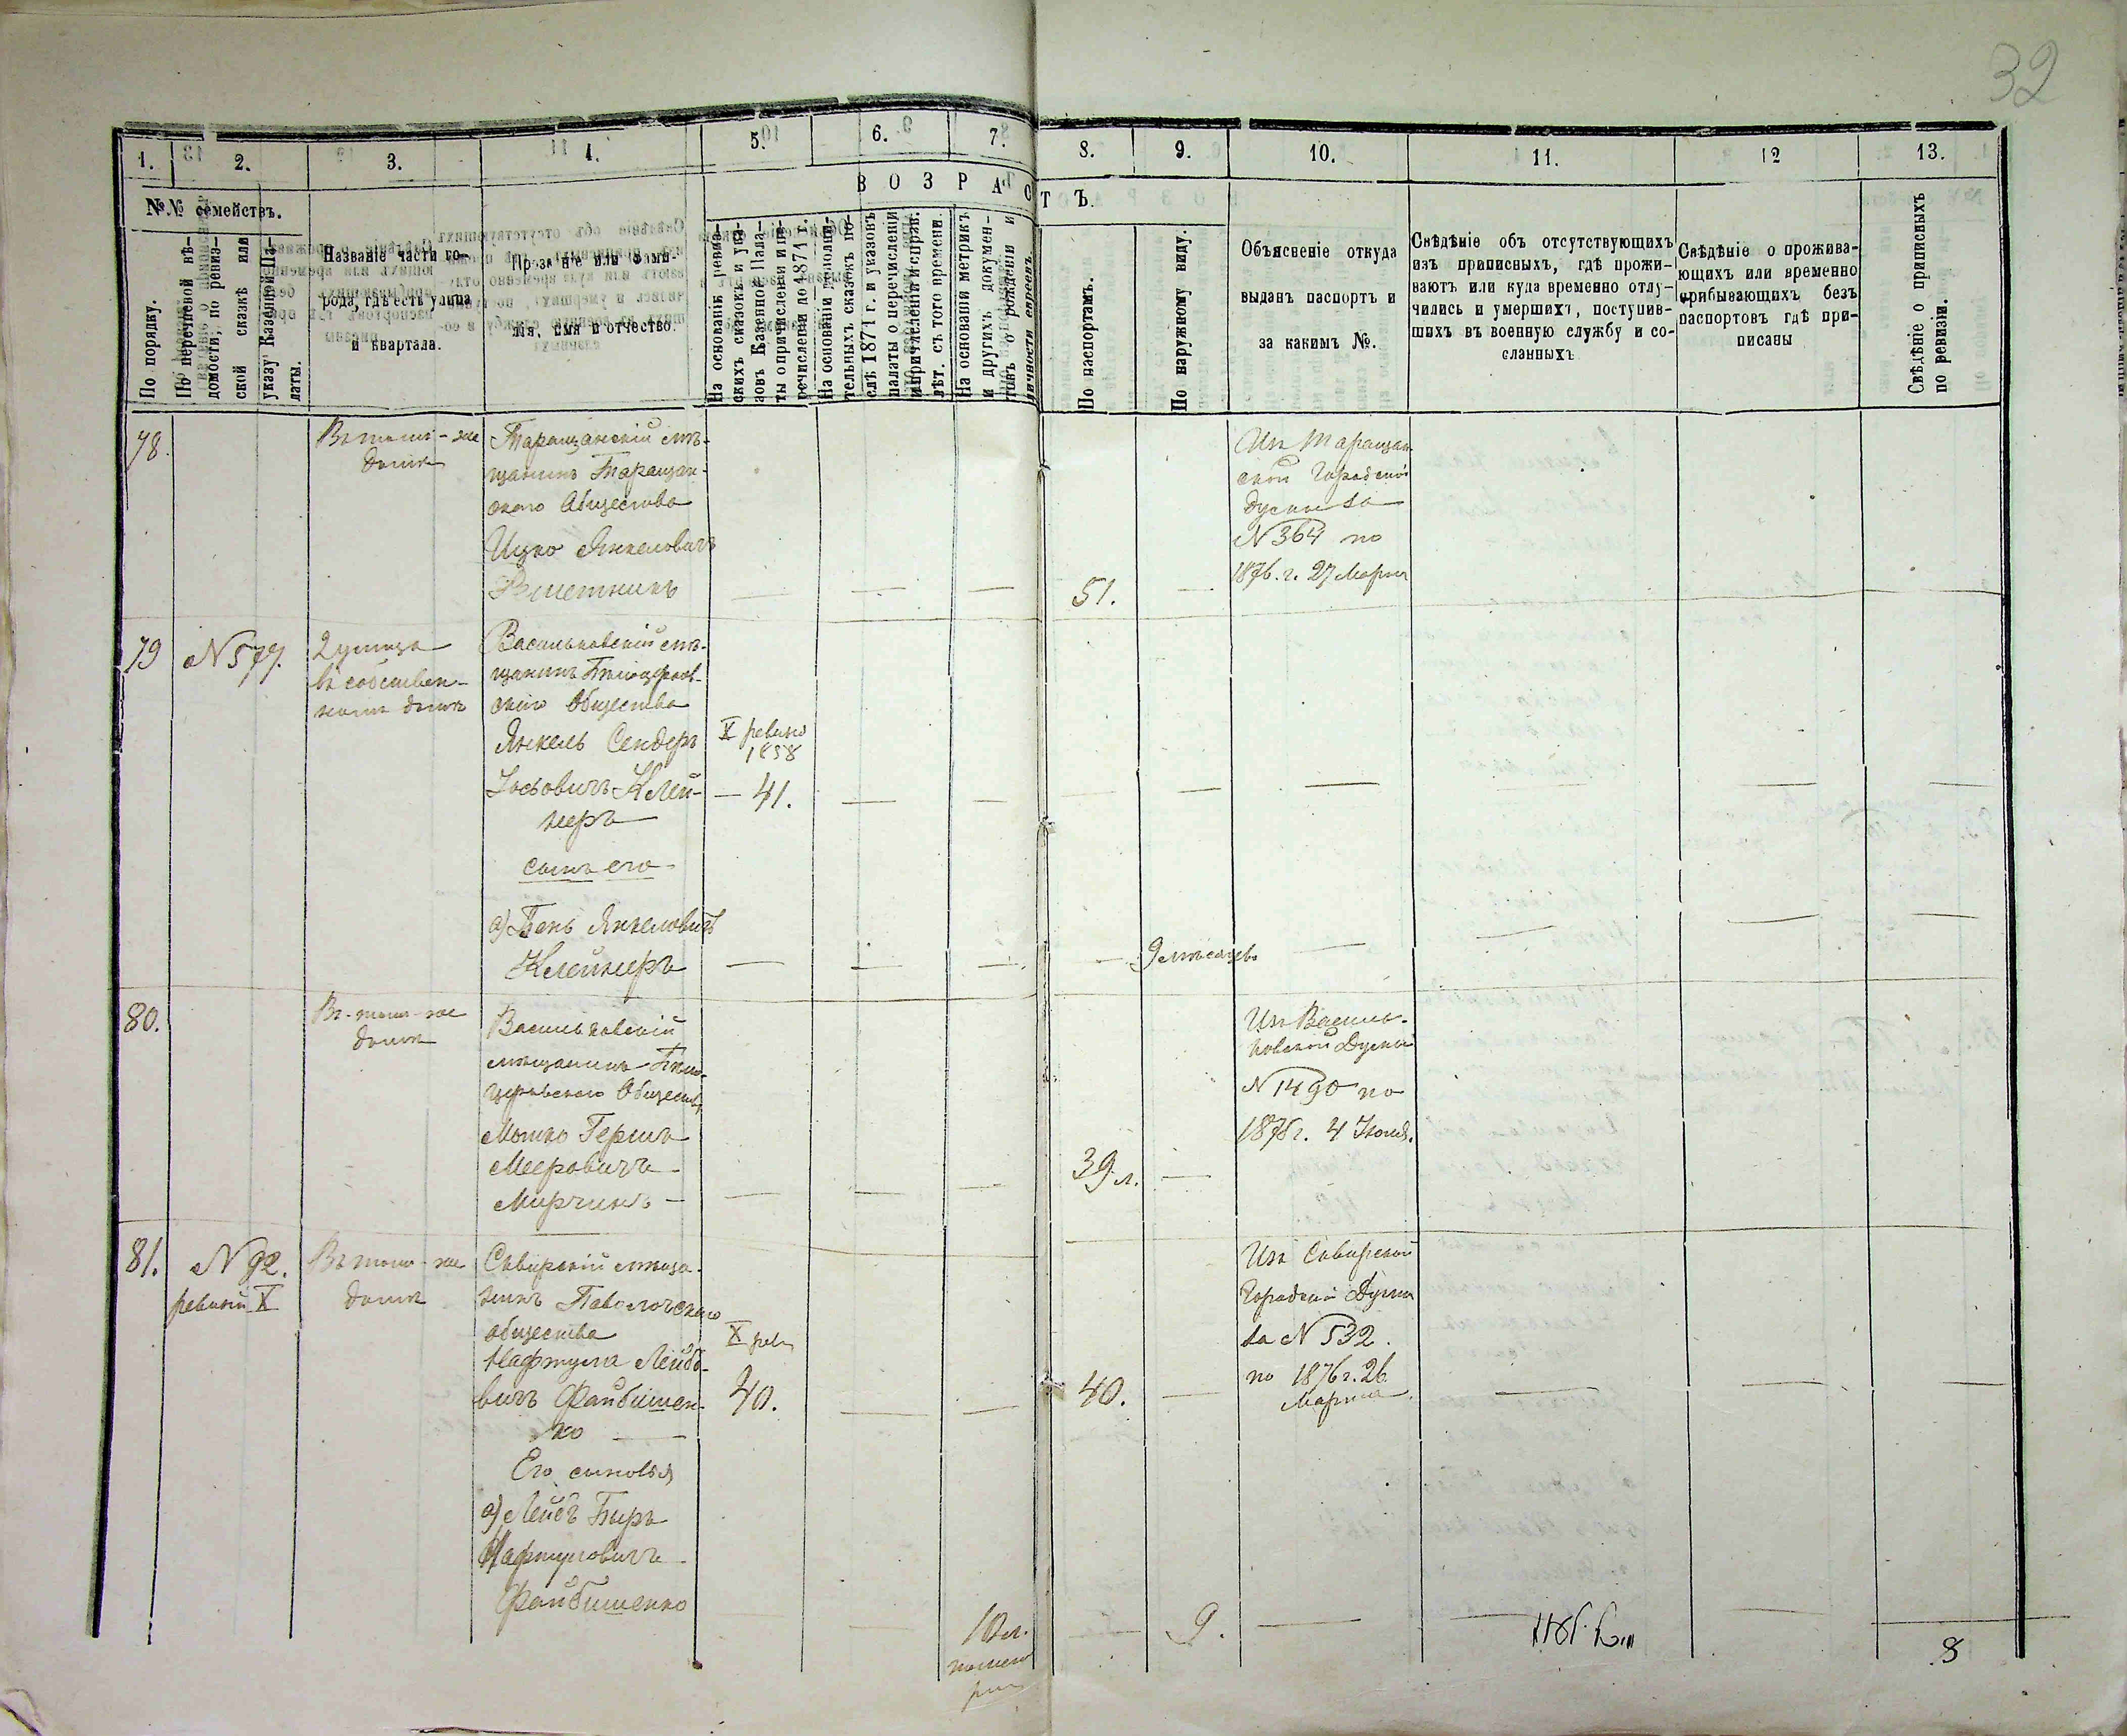 32
1.
2.
3.
4.
5.
6.
7.
8.
9.
10.
11.
12
13.
№№ семействъ.
По порядку.
По перечневой вѣ-
домости, по ревиз-
ской сказкѣ или
указу Казенной Па-
латы.
Названіе части го-
рода, гдѣ есть улица
и квартала.
Прозваніе или фами-
лія, имя и отчество.
ВОЗРАСТЪ.
На основаніи ревиз-
скихъ сказокъ и ука-
зовъ Казенной Пала-
ты о причисленіи и пе-
речисленіи до 1871 г.
На основаніи дополни-
тельныхъ сказокъ по-
слѣ 1871 г. и указовъ
палаты о перечисленіи
и причисленіи и справ.
лѣт. съ того времени.
На основаніи метрикъ
и другихъ докумен-
товъ о рожденіи и
личности евреевъ.
По паспортамъ.
По наружному виду.
Объясненіе откуда
выданъ паспортъ и
за какимъ №.
Свѣдѣніе объ отсутствующихъ
изъ приписныхъ, гдѣ прожи-
ваютъ или куда временно отлу-
чились и умершихъ, поступив-
шихъ въ военную службу и со-
сланныхъ
Свѣдѣніе о прожива-
ющихъ или временно
прибывающихъ безъ
паспортовъ гдѣ при-
писаны
Свѣдѣніе о приписныхъ
по ревизіи.
78.
Въ томъ-же
домѣ
Таращанскій мѣ-
щанинъ Таращан-
скаго Общества
Ицко Янкеловичъ
51.
Изъ Таращан-
ской Городской
Думы за
№ 364 по
1876. г. 27 Марта
79
№ 577.
2 улица
въ собствен-
номъ домѣ
Васильковскій мѣ-
щанинъ Бѣлоцерков-
скаго Общества
Янкель Сендеръ
Іосьовичъ Клей-
неръ
X ревизіи
1858
41.
сынъ его
а) Бень Янкеловичъ
Клейнеръ
9 мѣсяцевъ
80.
Въ-томъ-же
домѣ
Васильковскій
мѣщанинъ Бѣло-
церковскаго Общества
Мошко Гершъ
Мееровичъ
Мирчинъ
39 л.
Изъ Василь-
ковской Думы
№ 1490 по
1876 г. 4 Іюня.
81.
№ 92.
ревизіи X
Въ томъ-же
домѣ
Сквирскій мѣща-
нинъ Паволочскаго
общества
Нафтула Лейбо-
вичъ Файбишен-
ко
X рев
40.
40.
Изъ Сквирской
Городской Думы
за № 532.
по 1876 г. 26
Марта
Его сыновья
а) Лейбъ Беръ
Нафтуловичъ
Файбишенко
10 л.
по мет
рик
9.
8